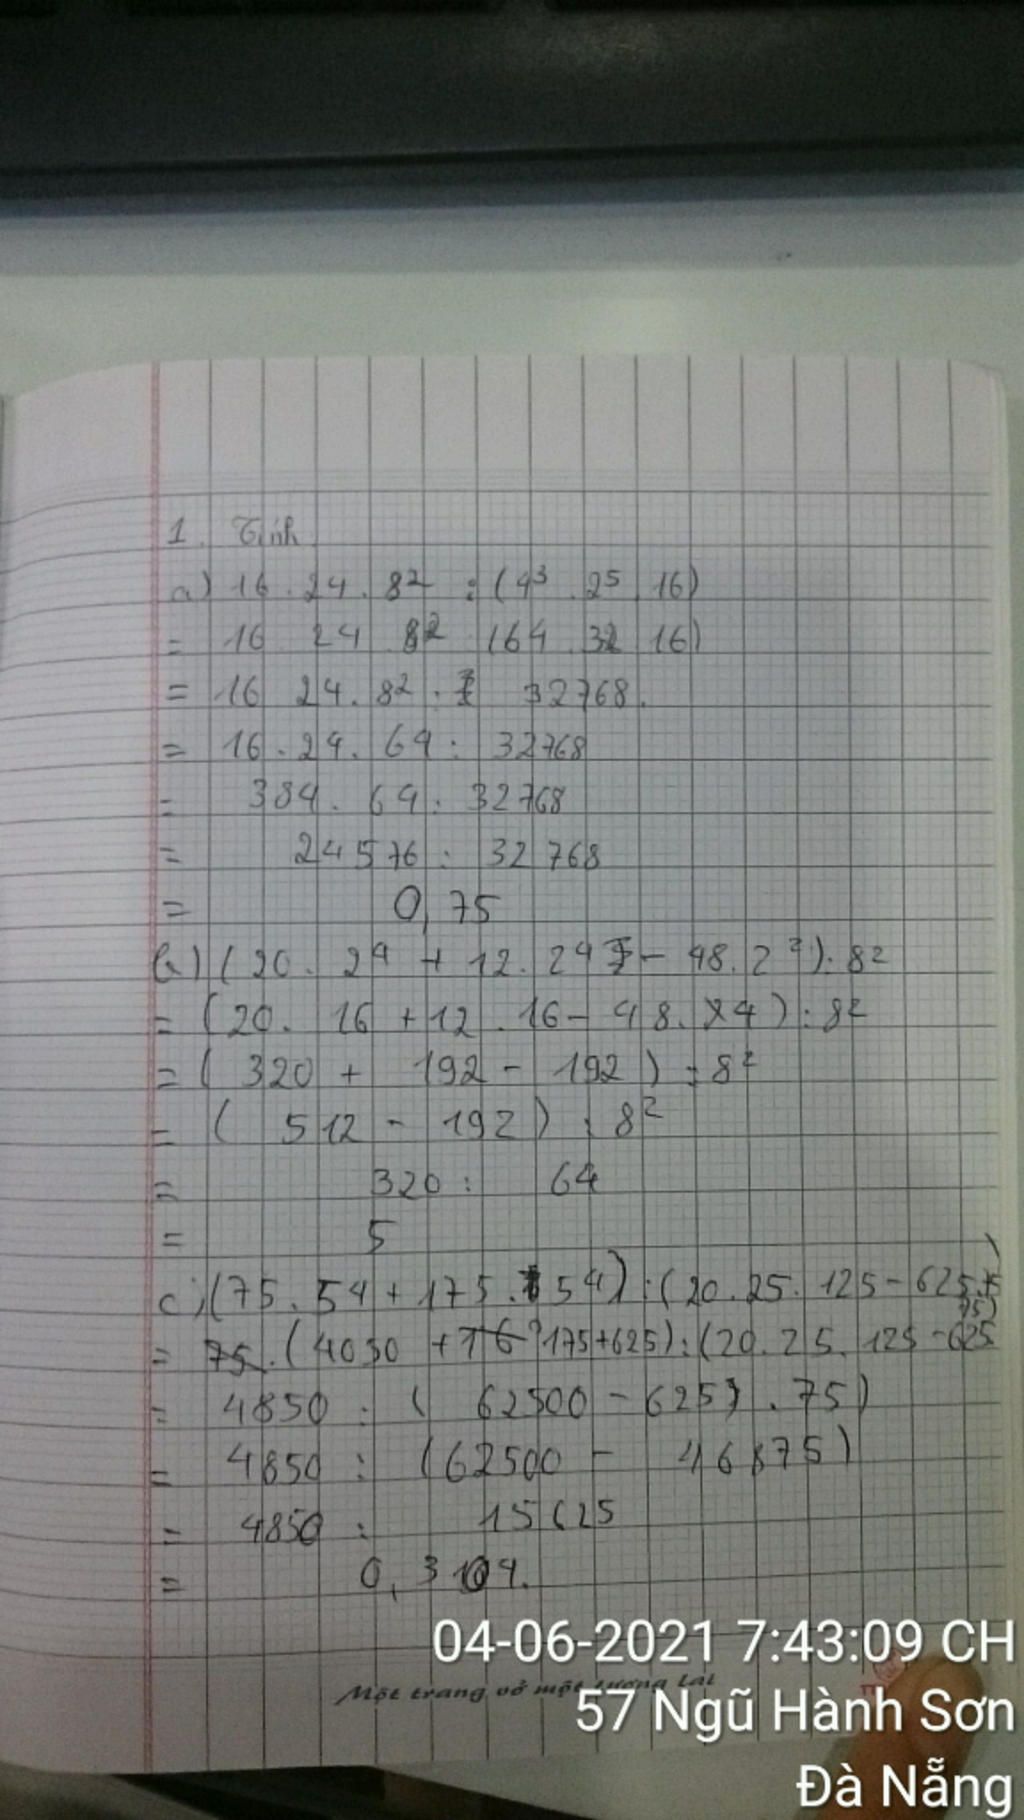 1. Tính
a) 16 . 24 . 8² : (4³ . 2⁵ . 16)
= 16 24 82 (64 32 16)
= 16 24 . 8² : 32768.
= 16 . 24 . 64 : 32768
= 384 . 64 : 32768
= 24576 : 32768
= 0,75
b) (20 . 2⁴ + 12 . 2⁴ - 48 . 2²) : 8²
= (20 . 16 + 12 . 16 - 48 . 4) : 8²
= ( 320 + 192 - 192 ) : 8²
= ( 512 - 192) : 8²
= 320 : 64
= 5
c) (75 . 54 + 175 . 54) : (20 . 25 . 125 - 625 . 75)
= (4050 + 175 + 625) : (20 . 25 . 125 - 625 . 75)
= 4850 : ( 62500 - 625) . 75)
= 4850 : (62500 - 46875)
= 4850 : 15625
= 0,3104.
Một trang vở một tương lai
04-06-2021 7:43:09 CH
57 Ngũ Hành Sơn
Đà Nẵng